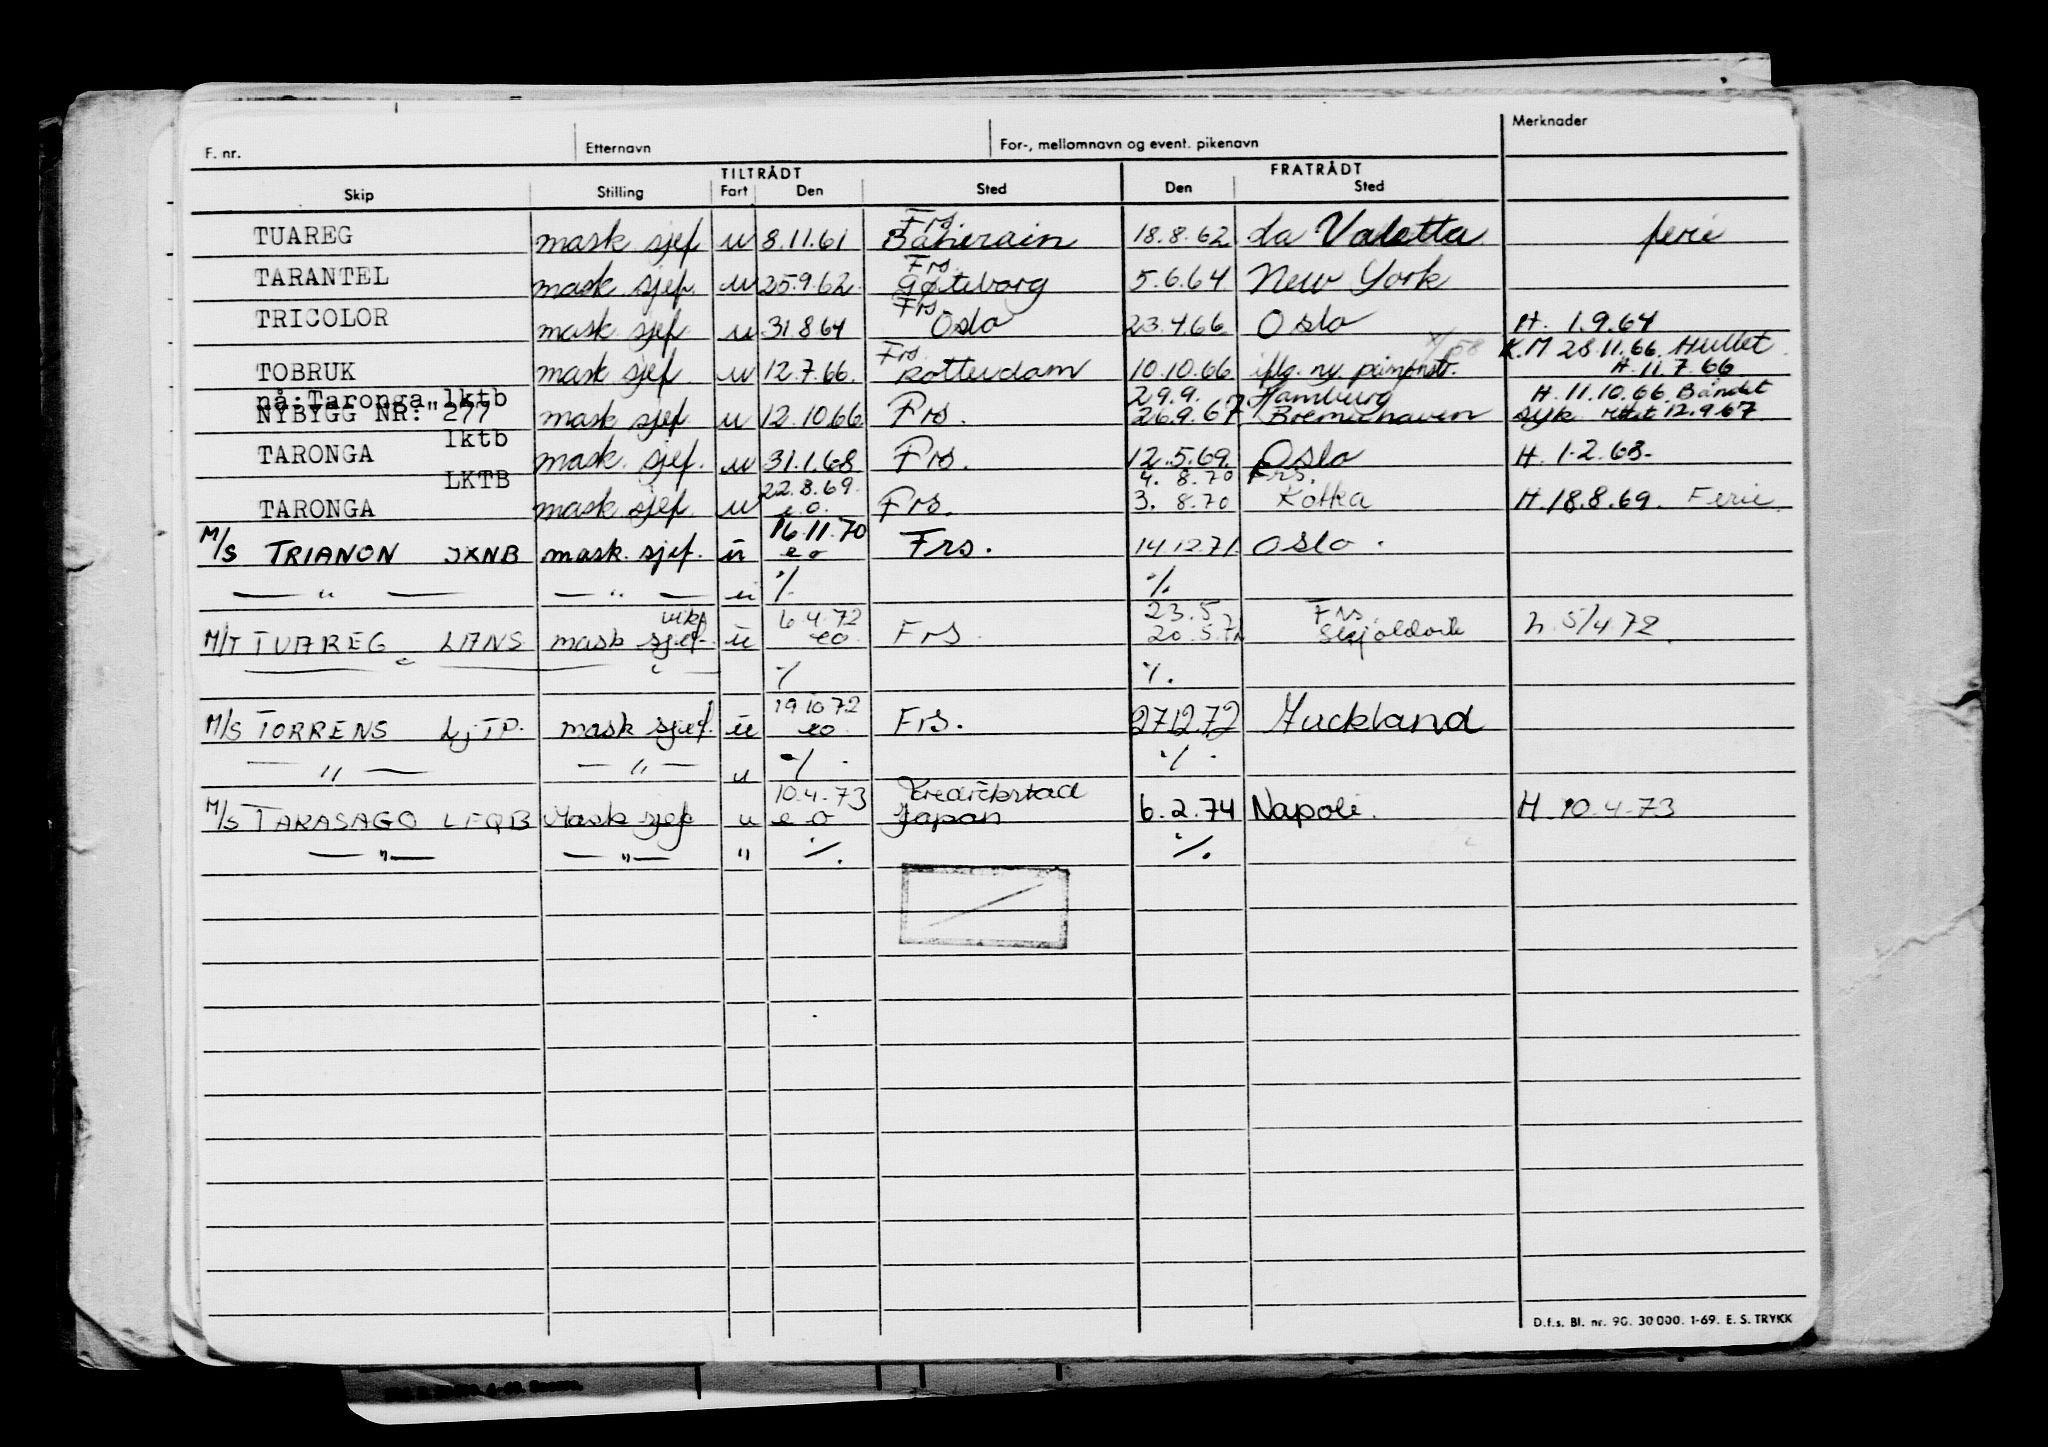 F. nr. Etternavn For-, mellomnavn og event. pikenavn Merknader
TILTRÅDT FRATRÅDT
Skip Stilling Fart Den Sted Den Sted
Frs.
TUAREG mask sjef u 8.11.61 Bahierain 18.8.62 La Valetta ferie
Frs.
TARANTEL mask sjef. u 25.9.62. Gøteborg 5.6.64 New York
Frs
TRICOLOR mask sjef u 31.8.64 Oslo 23.4.66. Oslo H. 1.9.64
Frs. K.M 28.11.66. Hullet
TOBRUK mask sjef u 12.7.66. Rotterdam 10.10.66 iflg. ny påmønstr. H. 11.7.66
nå:Taronga lktb 29.9. Hamburg H. 11.10.66 Båndet
NYBYGG NR:" 277 mask sjef u 12.10.66 Frs. 26.9.67 Bremerhaven syk 12.9.67.
lktb
TARONGA mask. sjef. u 31.1.68 Frs. 12.5.69. Oslo H. 1.2.68.
LKTB 22.8.69. 4. 8.70 Frs.
TARONGA mask sjef u e.o. Frs. 3. 8.70 Kotka H.18.8.69. Ferie.
16.11.70
M/S TRIANON JXNB mask. sjef. u eo Frs. 14.12.71. Oslo.
— " — — " — u %. %.
vik. 6.4.72 23.5 Frs.
M/T TUAREG LANS mask sjef. u eo Frs. 20.5.72 Skjoldvik h. 5/4.72.
— " — " % %.
19.10.72
M/S TORRENS LjTP. mask sjef. u eo Frs. 27.12.72 Auckland
— " — — " — u % . % .
10.4.73 Fredrikstad
M/S TARASAGO LFQB Mask sjef u eo Japan 6.2.74 Napoli. H. 10.4.73
— " — — " — " %. %.
D.f.s. Bl. nr. 90. 30 000. 1-69. E. S. TRYKK